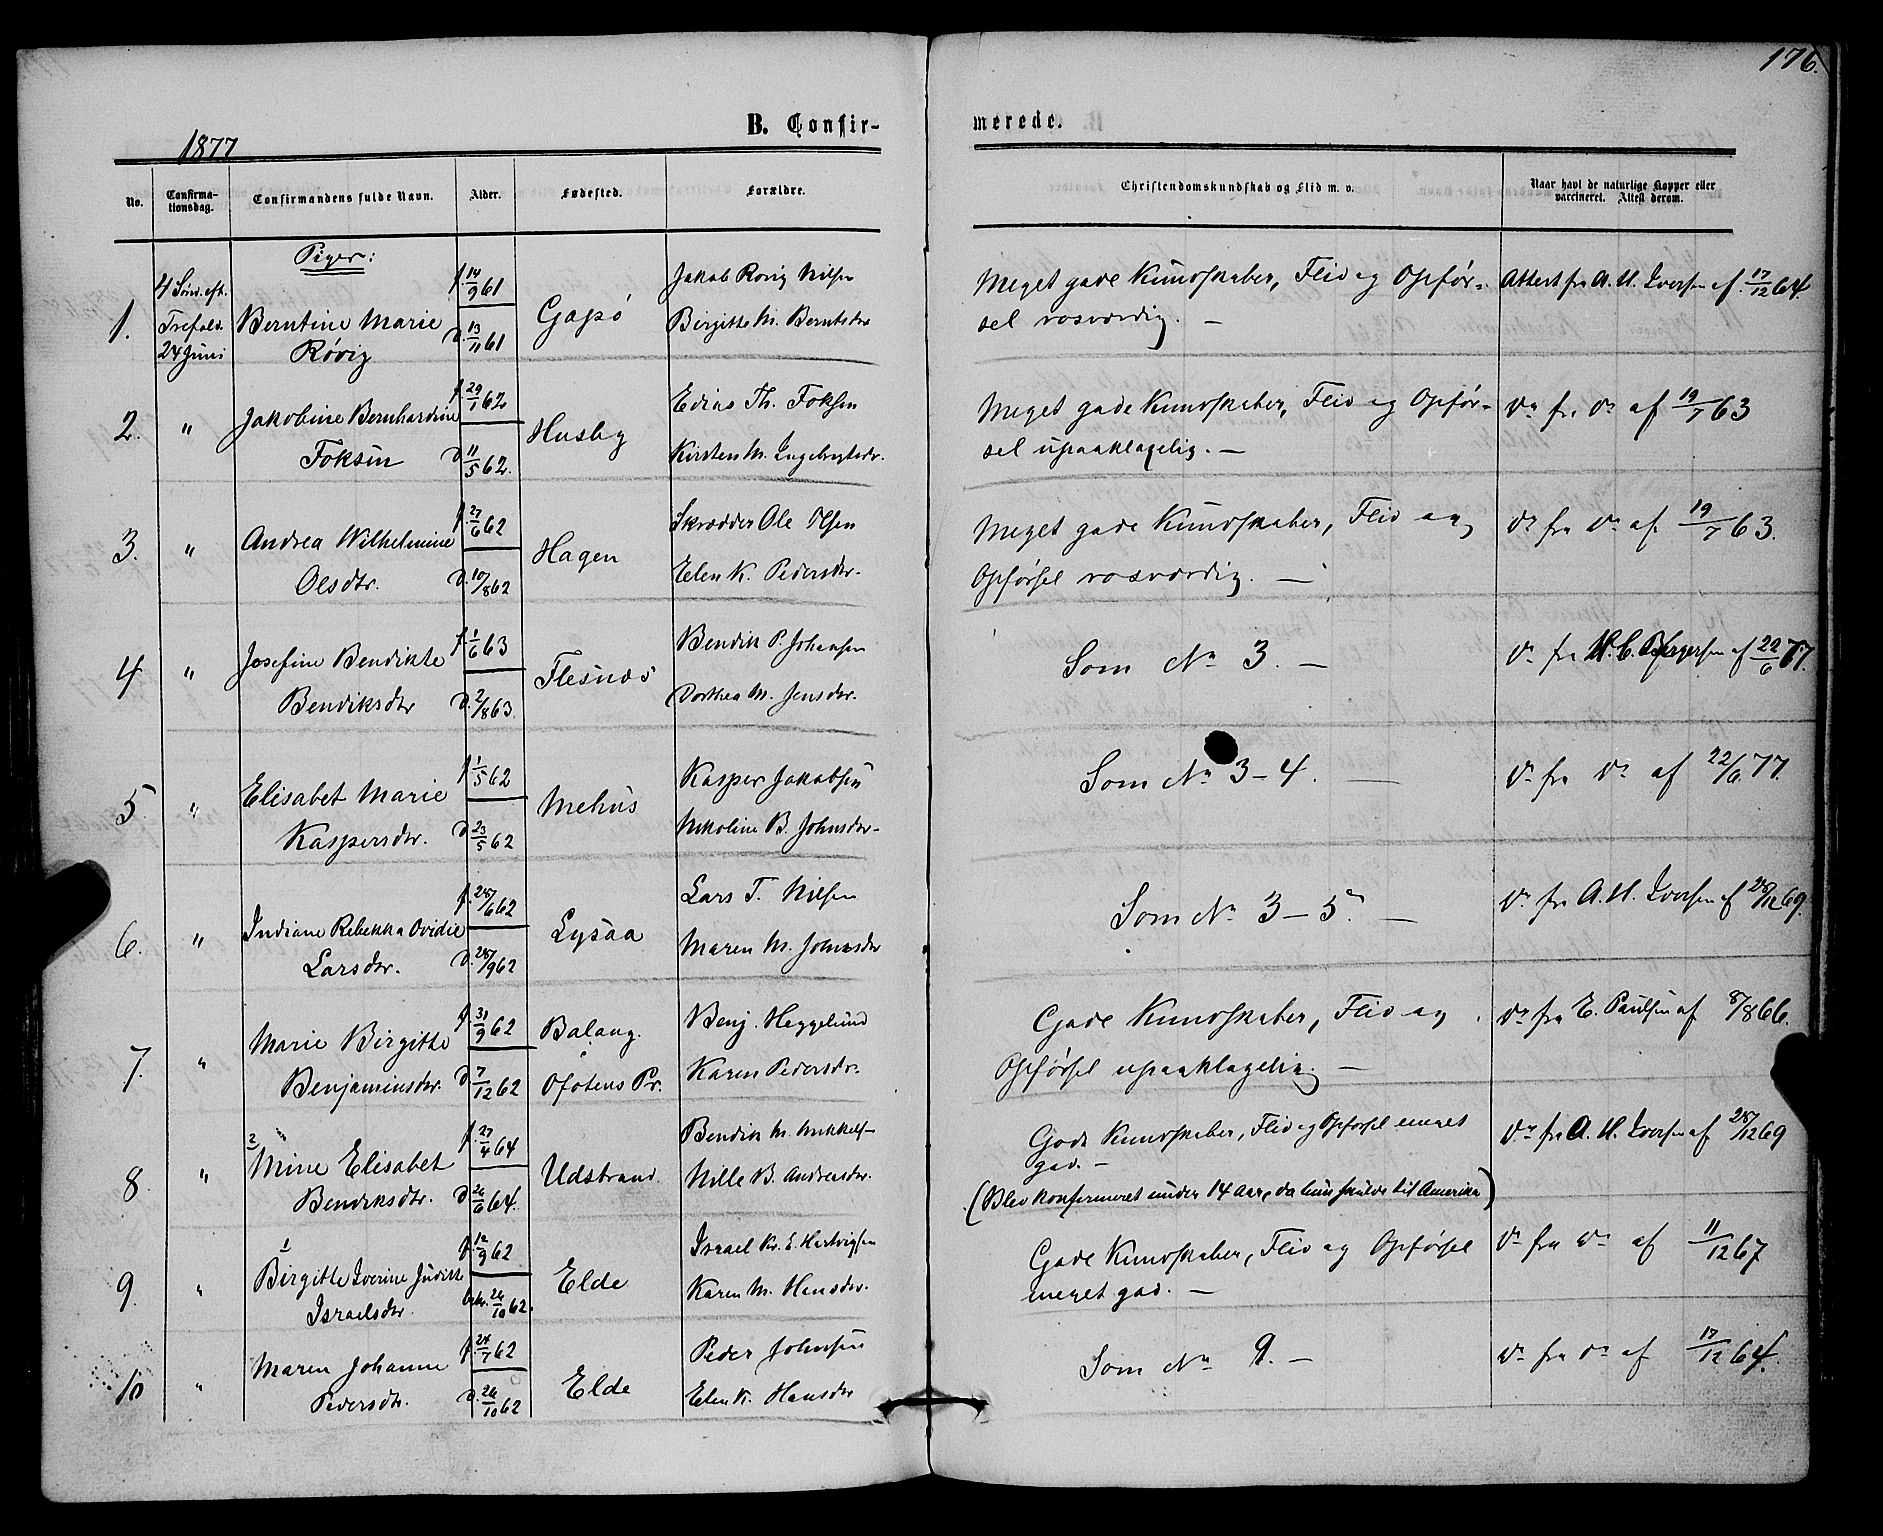 176.
B. Confir-
merede.
1877
No.
Confirma-
tionsdag.
Confirmandens fulde Navn.
Alder.
Fødested.
Forældre.
Christendomskundskab og Flid m. v.
Naar havt de naturlige Kopper eller
vaccineret. Attest derom.
Piger:
1.
4 Sønd. eft.
Trefold.
24 Juni
Berntine Marie
Røvig
f. 14/9 61
d. 13/11 61
Gapø
Jakob Røvig Nilsen
Birgitte M. Berntsdr
Meget gode Kundskaber, Flid og Opfør-
sel rosværdig. —
Attest fra A. H. Iversen af 17/12 64.
2.
"
Jakobine Bernhardine
Foksen
f. 29/1 62
d. 11/5 62.
Husby
Edias Th. Foksen
Kirsten M. Ingebrigtsdr.
Meget gode Kundskaber, Flid og Opfør-
sel upaaklagelig. —
do fra do af 19/7 63
3.
"
Andrea Wilhelmine
Olsdtr.
f. 27/6 62
d. 10/8 62
Hagen
Skrædder Ole Olsen
Elen K. Pedersdr.
Meget gode Kundskaber, Flid og
Opførsel rosværdig. —
do fra do af 19/7 63.
4
"
Josefine Bendikte
Bendiksdtr
f. 1/6 63
d. 2/8 63.
Flesnæs
Bendik P. Johansen
Dorthea M. Jensdr.
Som No 3. —
do fra af 22/6 77.
5.
"
Elisabet Marie
Kaspersdtr.
f. 1/5 62
d. 23/5 62
Mehus
Kasper Jakobsen
Nikoline B. Johnsdr.
Som No 3-4. —
do fra do af 22/6 77.
6.
"
Indiane Rebekka Ovidie
Larsdtr.
f. 28/6 62
d. 28/9 62
Lysaa
Lars T. Nilsen
Maren M. Johnsdr
Som No 3-5. —
do fra A. H. Iversen af 28/12 69.
7.
"
Marie Birgitte
Benjaminsdr.
f. 31/9 62
d. 7/12 62
Balang.
Ofotens Pr.
Benj. Heggelund
Karen Pedersdr.
Gode Kundskaber, Flid og
Opførsel upaaklagelig. —
do fra E. Paulsen af 8/8 66.
8.
"
2
Mine Elisabet
Bendiksdtr.
f. 27/4 64
d. 26/6 64.
Udstrand.
Bendik M. Mikkels-
Nille B. Andreasdr.
Gode Kundskaber, Flid og Opførsel meget
god. —
(Blev konfirmeret under 14 Aar, da hun skulde til Amerika)
do fra A. H. Iversen af 28/12 69
9.
"
1
Birgitte Iverine Judithe
Israelsdr.
f. 12/9 62
26/10 62.
Elde
Israel Kr. E. Hartvigsen
Karen M. Hansdr.
Gode Kundskaber, Flid og Opførsel
meget god. —
do fra do af 11/12 67
10
"
Maren Johanne
Pedersdtr.
f. 24/7 62
d. 26/10 62
Elde
Peder Johnsen
Elen K. Hansdr
Som No 9. —
do fra do af 17/12 64.